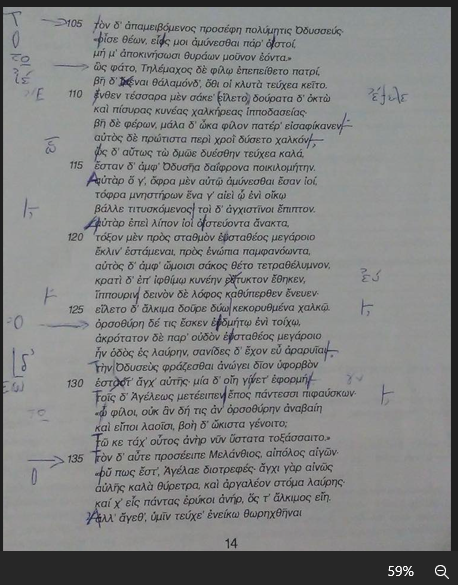 105 τὸν δ' ἀπαμειβόμενος προσέφη πολύμητις Ὀδυσσεύς·
«οἶσε θέων, εἷός μοι ἀμύνεσθαι πάρ' ὀϊστοί,
μή μ' ἀποκινήσωσι θυράων μοῦνον ἐόντα.»
ὣς φάτο, Τηλέμαχος δὲ φίλῳ ἐπεπείθετο πατρί,
βῆ δ' ἴμεναι θάλαμόνδ', ὅθι οἱ κλυτὰ τεύχεα κεῖτο.
110 ἔνθεν τέσσαρα μὲν σάκε' εἵλετο, δούρατα δ' ὀκτὼ
καὶ πίσυρας κυνέας χαλκήρεας ἱπποδασείας·
βῆ δὲ φέρων, μάλα δ' ὦκα φίλον πατέρ' εἰσαφίκανεν
αὐτὸς δὲ πρώτιστα περὶ χροῒ δύσετο χαλκόν
ὣς δ' αὔτως τὼ δμῶε δυέσθην τεύχεα καλά,
115 ἔσταν δ' ἀμφ' Ὀδυσῆα δαΐφρονα ποικιλομήτην.
αὐτὰρ ὅ γ', ὄφρα μὲν αὐτῷ ἀμύνεσθαι ἔσαν ἰοί,
τόφρα μνηστήρων ἕνα γ' αἰεὶ ᾧ ἐνὶ οἴκῳ
βάλλε τιτυσκόμενος τοὶ δ' ἀγχιστῖνοι ἔπιπτον.
αὐτὰρ ἐπεὶ λίπον ἰοὶ ὀϊστεύοντα ἄνακτα,
120 τόξον μὲν πρὸς σταθμὸν ἐϋσταθέος μεγάροιο
ἔκλιν' ἑστάμεναι, πρὸς ἐνώπια παμφανόωντα,
αὐτὸς δ' ἀμφ' ὤμοισι σάκος θέτο τετραθέλυμνον,
κρατὶ δ' ἐπ' ἰφθίμῳ κυνέην εὔτυκτον ἔθηκεν,
ἵππουριν δεινὸν δὲ λόφος καθύπερθεν ἔνευεν·
125 εἵλετο δ' ἄλκιμα δοῦρε δύω κεκορυθμένα χαλκῷ.
ὀρσοθύρη δέ τις ἔσκεν ἐϋδμήτῳ ἐνὶ τοίχῳ,
ἀκρότατον δὲ παρ' οὐδὸν ἐϋσταθέος μεγάροιο
ἦν ὁδὸς ἐς λαύρην, σανίδες δ' ἔχον εὖ ἀραρυῖαι
τὴν Ὀδυσεὺς φράζεσθαι ἀνώγει δῖον ὑφορβὸν
130 ἑσταότ' ἄγχ' αὐτῆς· μία δ' οἴη γίνετ' ἐφορμή
τοῖς δ' Ἀγέλεως μετέειπεν ἔπος πάντεσσι πιφαύσκων·
«ὦ φίλοι, οὐκ ἂν δή τις ἀν' ὀρσοθύρην ἀναβαίη
καὶ εἴποι λαοῖσι, βοὴ δ' ὤκιστα γένοιτο;
τῶ κε τάχ' οὗτος ἀνὴρ νῦν ὕστατα τοξάσσαιτο.»
135 τὸν δ' αὖτε προσέειπε Μελάνθιος, αἰπόλος αἰγῶν·
«οὔ πως ἔστ', Ἀγέλαε διοτρεφές· ἄγχι γὰρ αἰνῶς
αὐλῆς καλὰ θύρετρα, καὶ ἀργαλέον στόμα λαύρης·
καί χ' εἷς πάντας ἐρύκοι ἀνήρ, ὅς τ' ἄλκιμος εἴη.
ἀλλ' ἄγεθ', ὑμῖν τεύχε' ἐνείκω θωρηχθῆναι
14
59%